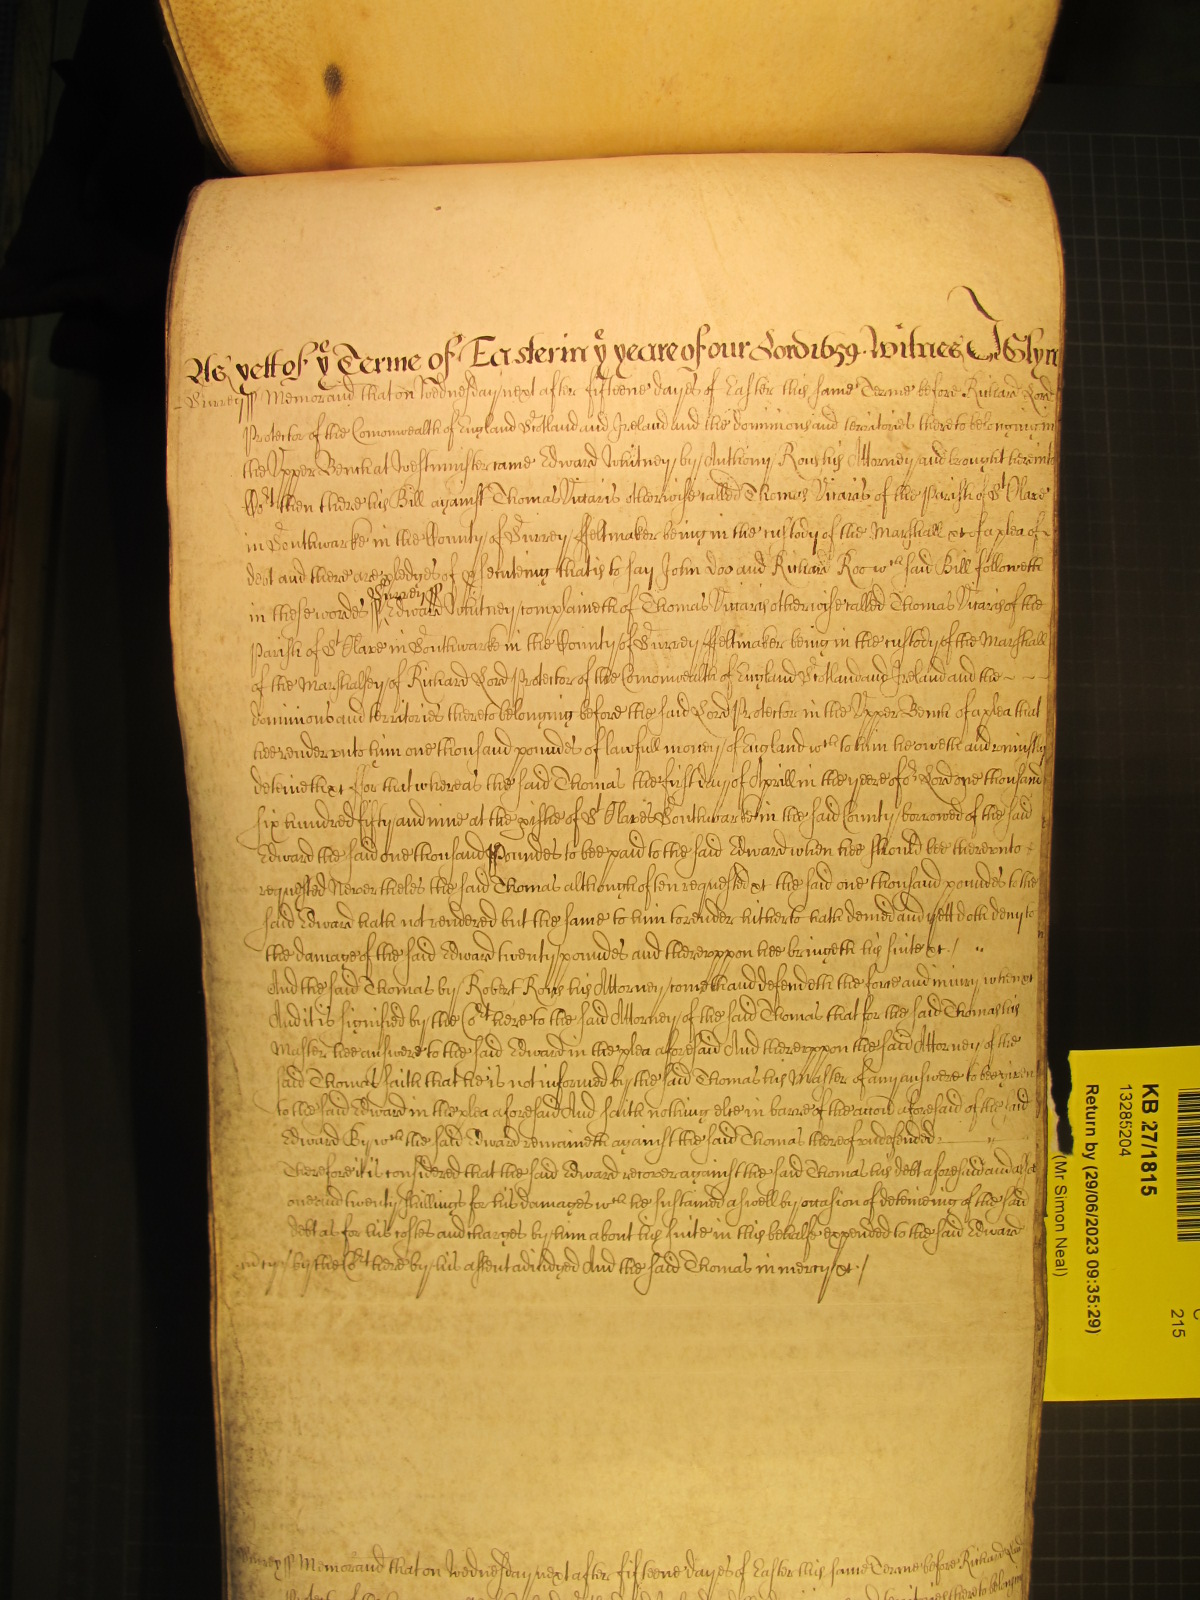 As yett of ye Terme of Easter in ye yeare of our Lord 1659. Witnes J Glyn
Surrey ss Memorand that on Wednesday next after fifteene dayes of Easter this same Terme before Richard Lord
Protector of the Comonwealth of England Scotland and Ireland and the dominions and territories thereto belonging in
the Upper Bench at Westminster came Edward Whitney by Anthony Rous his Attorney and brought here into
Cort then there his Bill against Thomas Vicaris otherwise called Thomas Vicaris of the Parish of St Olave
in Southwarke in the County of Surrey Feltmaker being in the custody of the Marshall &c of a plea of
debt and there are pledges of psecuteing that is to say John Doo and Richard Roo wch said Bill followeth
in these wordes ss Surrey ss Edward Whitney complaineth of Thomas Vicaris otherwise called Thomas Vicaris of the
Parish of St Olave in Southwarke in the County of Surrey Feltmaker being in the custody of the Marshall
of the Marshalsey of Richard Lord Protector of the Comonwealth of England Scotland and Ireland and the
dominions and territories thereto belonging before the said Lord Protector in the Upper Bench of a plea that
hee render unto him one thousand poundes of lawfull money of England wch to him he oweth and uniustly
deteineth &c For that whereas the said Thomas the first day of Aprill in the yeere of or Lord one thousand
six hundred fifty and nine at the pishe of St Olaves Southwarke in the said County borrowed of the said
Edward the said one thousand Poundes to bee paid to the said Edward when hee should bee thereunto
requested Nevertheles the said Thomas although often requested &c the said one thousand poundes to the
said Edward hath not rendered but the same to him to render hitherto hath denied and yett doth deny to
the damage of the said Edward twenty poundes and thereuppon hee bringeth his suite &c /
And the said Thomas by Robert Rous his Attorney cometh and defendeth the force and iniury when &c
And it is signified by the Cort here to the said Attorney of the said Thomas that for the said Thomas his
Master hee answere to the said Edward in the plea aforesaid And thereuppon the said Attorney of the
said Thomas saith that he is not informed by the said Thomas his Master of any answere to bee given
to the said Edward in the plea aforesaid And saith nothing else in barre of the accon aforesaid of the said
Edward By wch the said Edward remaineth against the said Thomas thereof undefended
Therefore it is considered that the said Edward recover against the said Thomas his debt aforesaid and alsoe
one and twenty shillings for his damages wch he sustained aswell by occasion of deteineing of the said
debt as for his costes and charges by him about his suite in this behalfe expended to the said Edward
by the Cort here by his assent adiudged And the said Thomas in mercy &c /
Surrey ss Memorand that on Wednesday next after fifteene dayes of Easter this same Terme before Richard Lord
thereto belonging
KB 27/1815
13285204
Return by (29/06/2023 09:35:29)
(Mr Simon Neal)
215